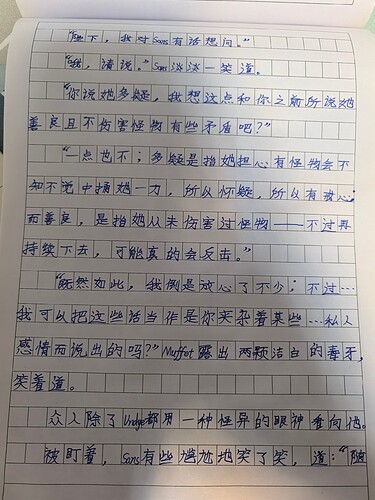 “陛下，我对Sans有话想问。”
“哦，请说。”Sans淡淡一笑道。
“你说她多疑，我想这点和你之前所说她
善良且不伤害怪物有些矛盾吧？”
“一点也不；多疑是指她担心有怪物会不
知不觉中捅她一刀，所以怀疑，所以有戒心；
而善良，是指她从未伤害过怪物——不过再
持续下去，可能真的会反击。”
“既然如此，我倒是放心了不少；不过…
我可以把这些话当作是你夹杂着某些…私人
感情而说出的吗？”Muffet露出两颗洁白的毒牙，
笑着道。
众人除了Undyne都用一种怪异的眼神看向他。
被盯着，Sans有些尴尬地笑了笑，道：“随